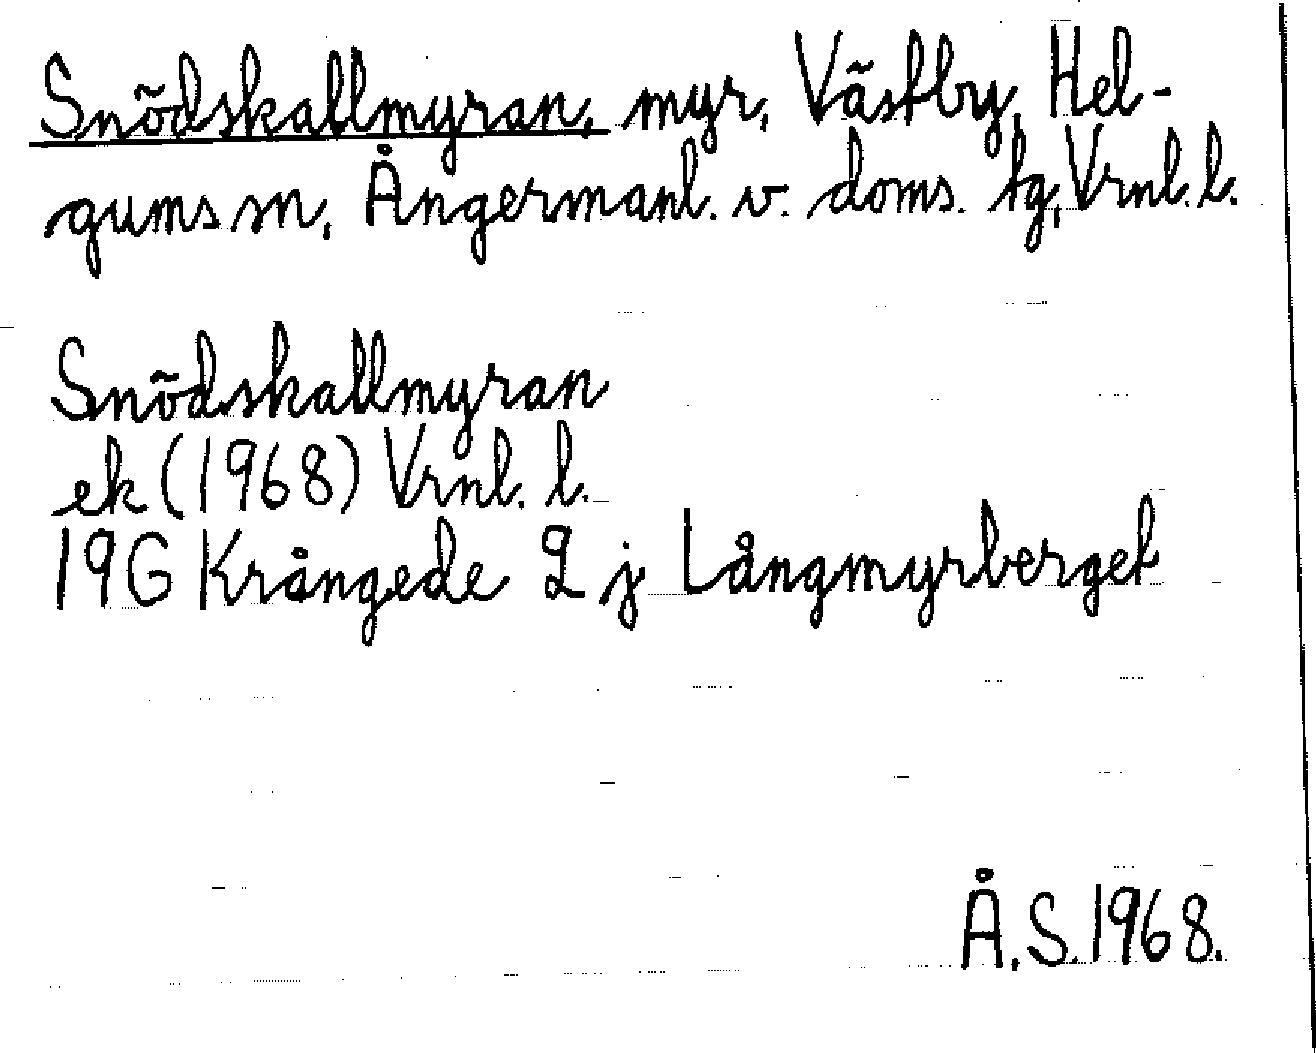 Snödskallmyran, myr, Västby, Hel-
gums sn, Ångermanl. v. doms. tg, Vrnl. l.
Snödskallmyran
ek (1968) Vrnl. l.
19G Krångede 2 j Långmyrberget
Å.S. 1968.